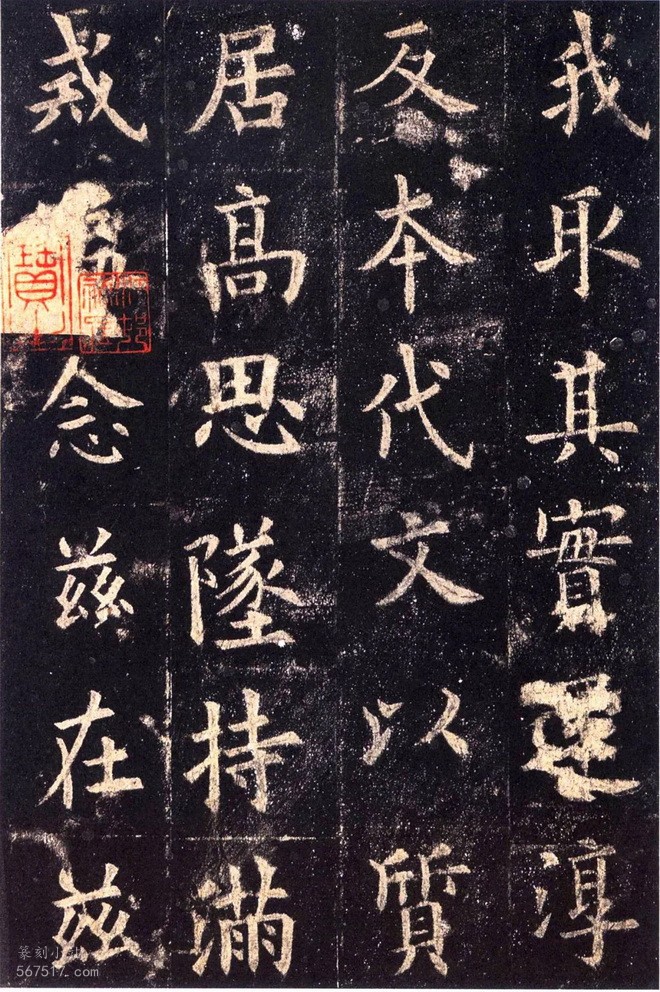 我取其實還淳
反本代文以質
居高思墜持滿
戒念茲在茲
篆刻小
567517.com